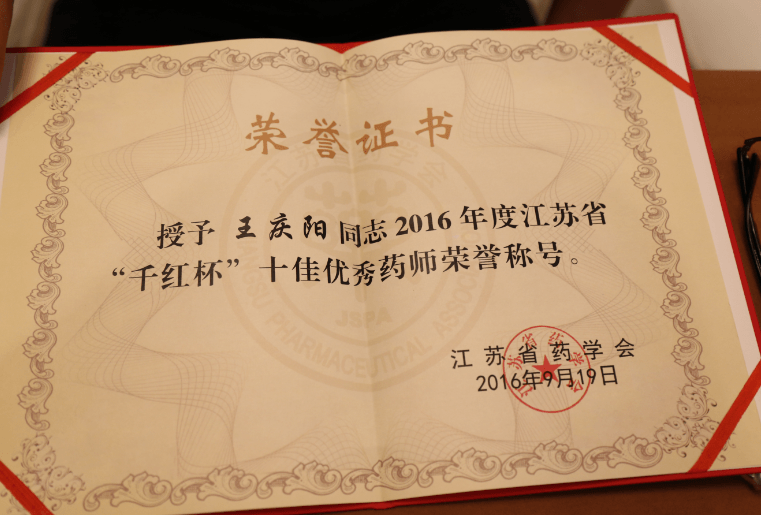 荣誉证书
授予 王庆阳 同志 2016 年度江苏省
“千红杯”十佳优秀药师荣誉称号。
江苏省药学会
2016年9月19日
江苏省药学会
JSPA
PHARMACEUTICAL